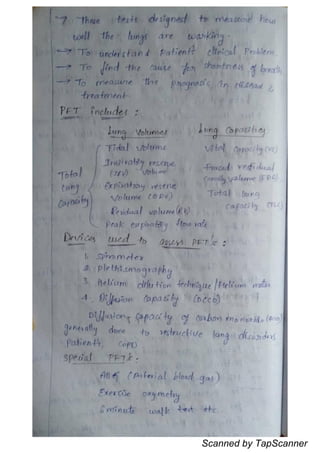 → These tests designed to measured how
well the lungs are working.
→ To understand Patient clinical Problem.
→ To find the cause for shortness of breath
→ To measure the prognosis in disease &
treatment.
PFT includes :
Lung Volumes Lung Capacities
Tidal volume Vital capacity (VC)
Inspiratory reserve
(IRV) volume
residual
volume (FRC)
Total
Lung
Capacity
Expiratory reserve
volume (ERV)
Total lung
capacity (TLC)
Residual volume (RV)
Peak expiratory flow rate
Devices used to assess PFT's :
1. Spirometer
2. Plethismography
3. Helium dilution technique / Helium meter
4. Diffusion capacity (DLCO)
Diffusion capacity of carbon monoxide
generally done to restrictive lung disorders
Patient, COPD
Special PFT's :
ABG (Arterial blood gas)
Exercise oxymetry
6 minute walk test etc.
Scanned by TapScanner